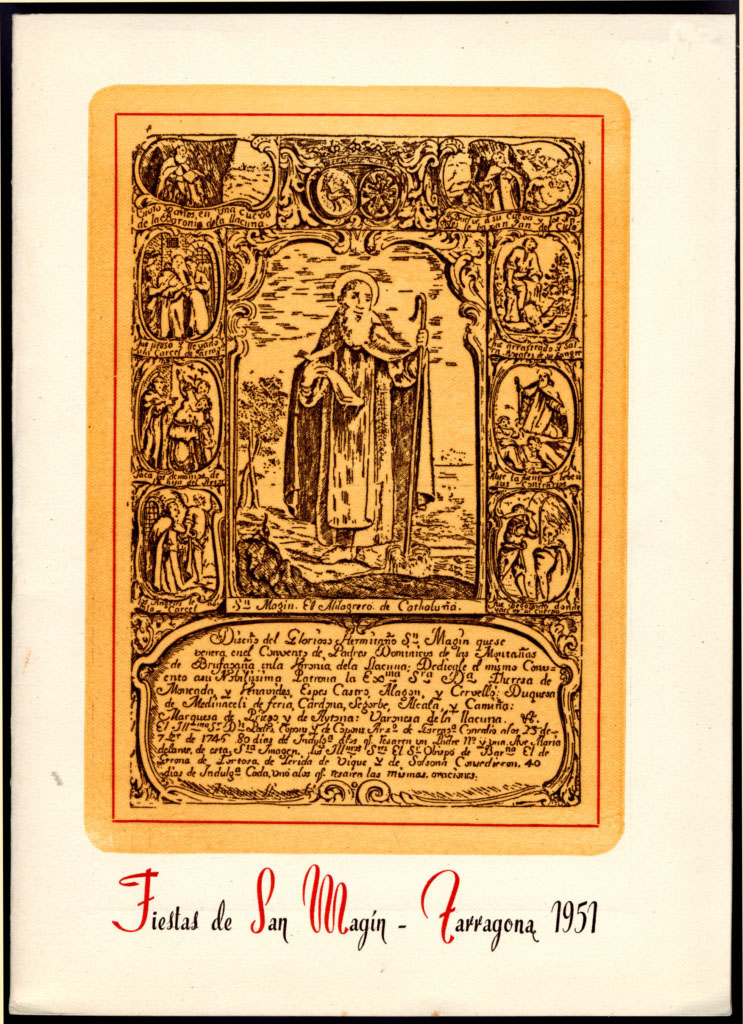 Vivio 30 años, en una Cueva
de la Baronia de la Llacuna
Fue preso y llevado
Fue arrastrado y
Saca los demonios de
la hija del
Abre la fuente
sus Contrarios
Los Angeles le
Carcel
Fue degollado donde
yace el Cuerpo
Sn. Magin. El Milagrero. de Cathaluña.
Diseño del Glorioso Hermitaño Sn. Magin que se
venera en el Convento de Padres Dominicos de las Montañas
de Brufagaña en la Varonia de la Llacuna: Dedicale el mismo Conv-
ento a su Nobilissima Patrona la Exma. Sra. Da. Theresa de
Moncada y Venavides, Espes Castro, Alagon, y Cervello: Duquesa
de Medinaceli de feria, Cardona, Segorbe, Alcala, y Camiña:
Marquesa de Priego y de Aytona: Varonesa de la Llacuna. &.
El Illmo. Sr. Dn. Pedro, Copons y de Copons Arz. de Tarrga. Concedio alos 23 de
7-bre de 1745 80 dias de Indulga. alos q. resaren un Padre Nro. y una Ave Maria
delante, de esta, Sta. Imagen. Los Illmos. Srs. El Sr. Obispo de Barna. El de
Gerona de Tortosa, de Lerida de Vique Y de Solsona Concedieron. 40
dias de Indulga. Cada, Uno alos q. resaren las mismas. oraciones.
Fiestas de San Magín - Tarragona 1951